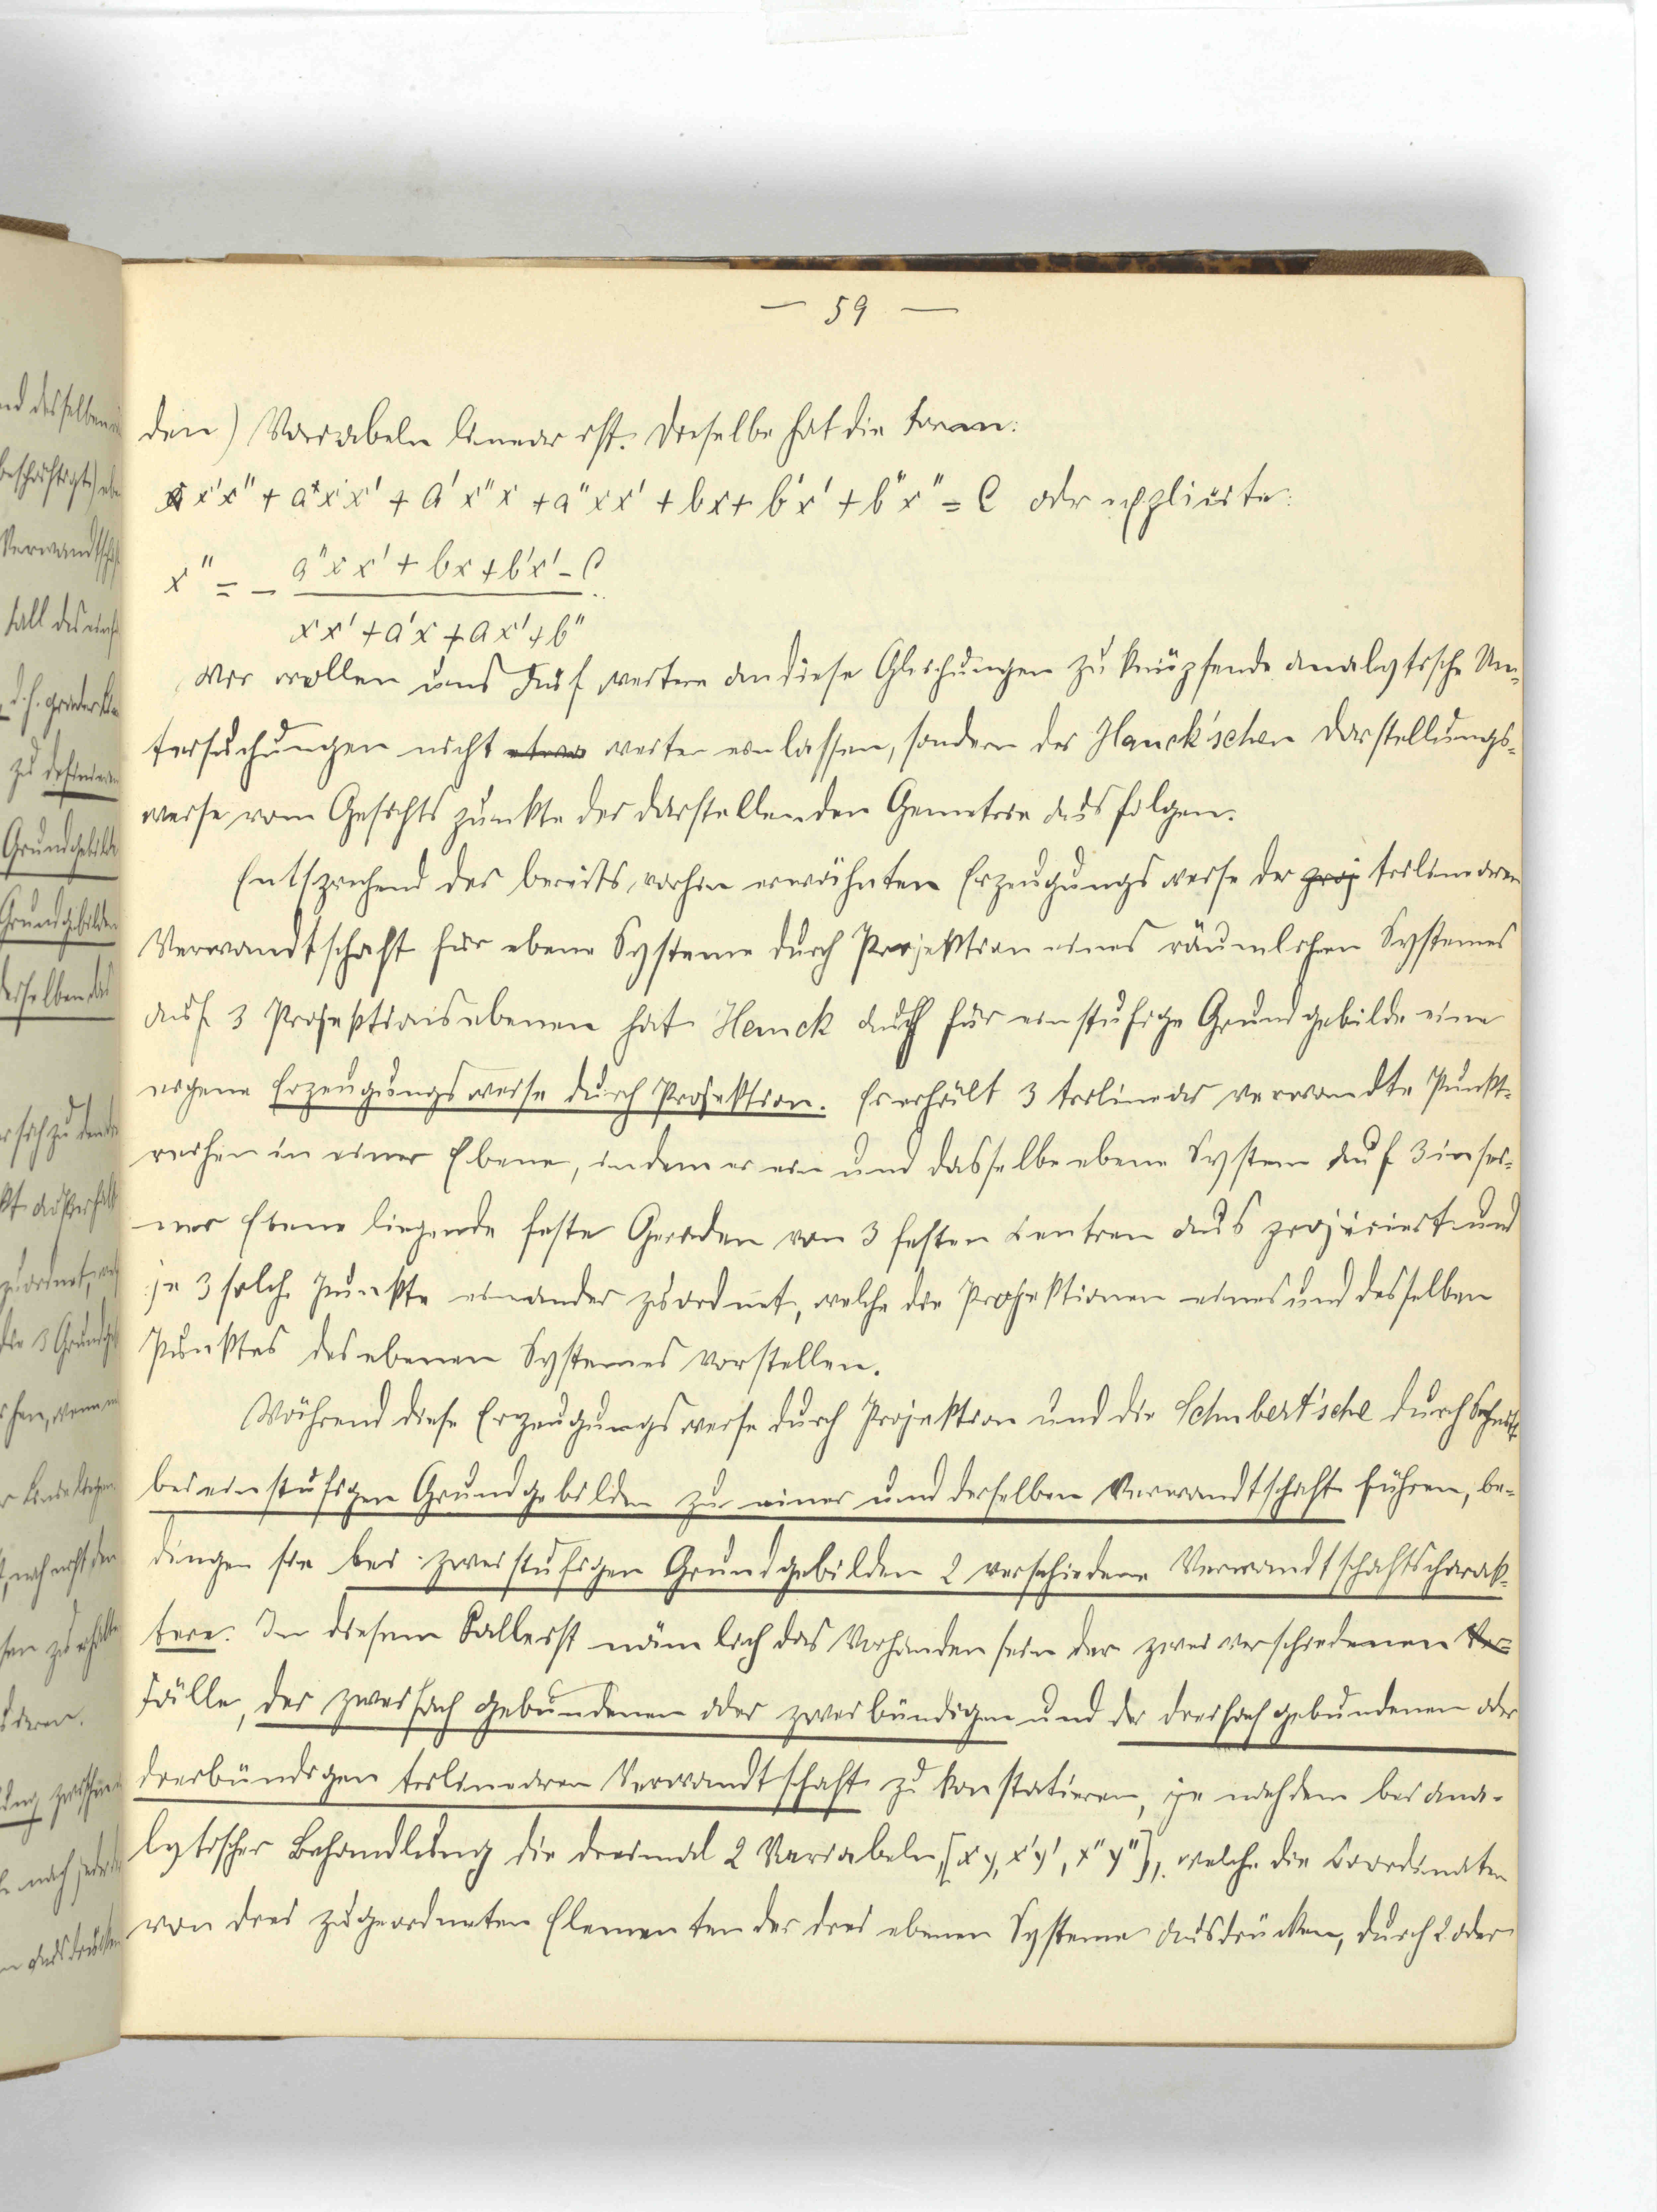 — 59 —
den) Variabeln linear ist. Dieselbe hat die Form:
x x'x" + a x'x" + a'x"x + a"xx' + bx + b'x' + b"x" = C oder explicite:
x" = - (a"xx' + bx + b'x' - C) / (xx' + a'x + ax' + b").
Wir wollen uns auf weitere an diese Gleichungen zu knüpfende analytische Un-
tersuchungen nicht etwa weiter einlassen, sondern der Hauck'schen Darstellungs-
weise vom Gesichtspunkte der darstellenden Geometrie aus folgen.
Entsprechend der bereits vorhin erwähnten Erzeugungsweise der proj trilinearen
Verwandtschaft für ebene Systeme durch Projektion eines räumlichen Systemes
auf 3 Projektionsebenen hat Hauck auch für einstufige Grundgebilde eine
eigene Erzeugungsweise durch Projektion. Er erhält 3 trilinear verwandte Punkt-
reihen in einer Ebene, indem er ein und dasselbe ebene System auf 3 in sei-
ner Ebene liegende feste Geraden von 3 festen Centren aus projiciert und
je 3 solche Punkte einander zuordnet, welche die Projektionen eines und desselben
Punktes des ebenen Systemes vorstellen.
Während diese Erzeugungsweise durch Projektion und die Schubert'sche durch Schnitt
bei einstufigen Grundgebilden zu einer und derselben Verwandtschaft führen, be-
dingen sie bei zweistufigen Grundgebilden 2 verschiedene Verwandtschaftscharak-
tere. In diesem Falle ist nämlich das Vorhandensein der zwei verschiedenen Ver-
Fälle, der zweifach gebundenen oder zweibündigen und der dreifach gebundenen oder
dreibündigen trilinearen Verwandtschaft zu konstatieren, je nachdem bei ana-
lytischer Behandlung die dreimal 2 Variabeln, [xy, x'y', x"y"], welche die Coordinaten
von drei zugeordneten Elementen der drei ebenen Systeme ausdrücken, durch 2 oder